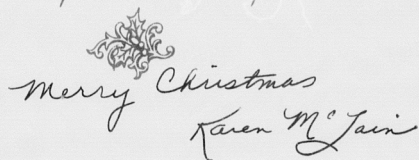 Merry Christmas
Karen McLain